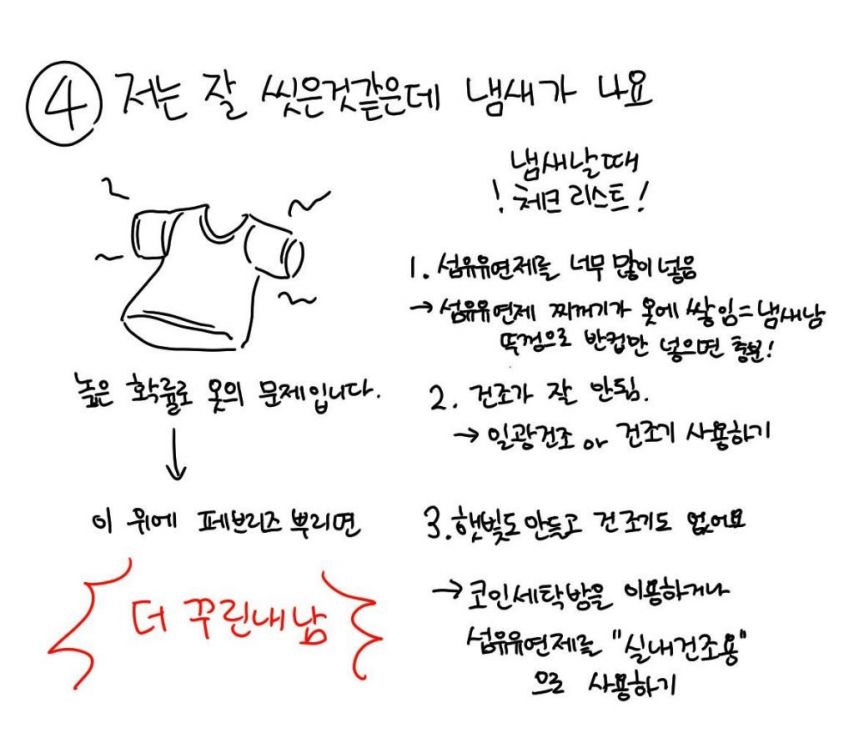 ④ 저는 잘 씻은것같은데 냄새가 나요
높은 확률로 옷의 문제입니다.
↓
이 위에 페브리즈 뿌리면
더 꾸린내남
냄새날때
! 체크 리스트 !
1. 섬유유연제를 너무 많이 넣음
→ 섬유유연제 찌꺼기가 옷에 쌓임 = 냄새남
뚜껑으로 반컵만 넣으면 충분!
2. 건조가 잘 안됨.
→ 일광건조 or 건조기 사용하기
3. 햇빛도 안들고 건조기도 없어요
→ 코인세탁방을 이용하거나
섬유유연제를 "실내건조용"
으로 사용하기